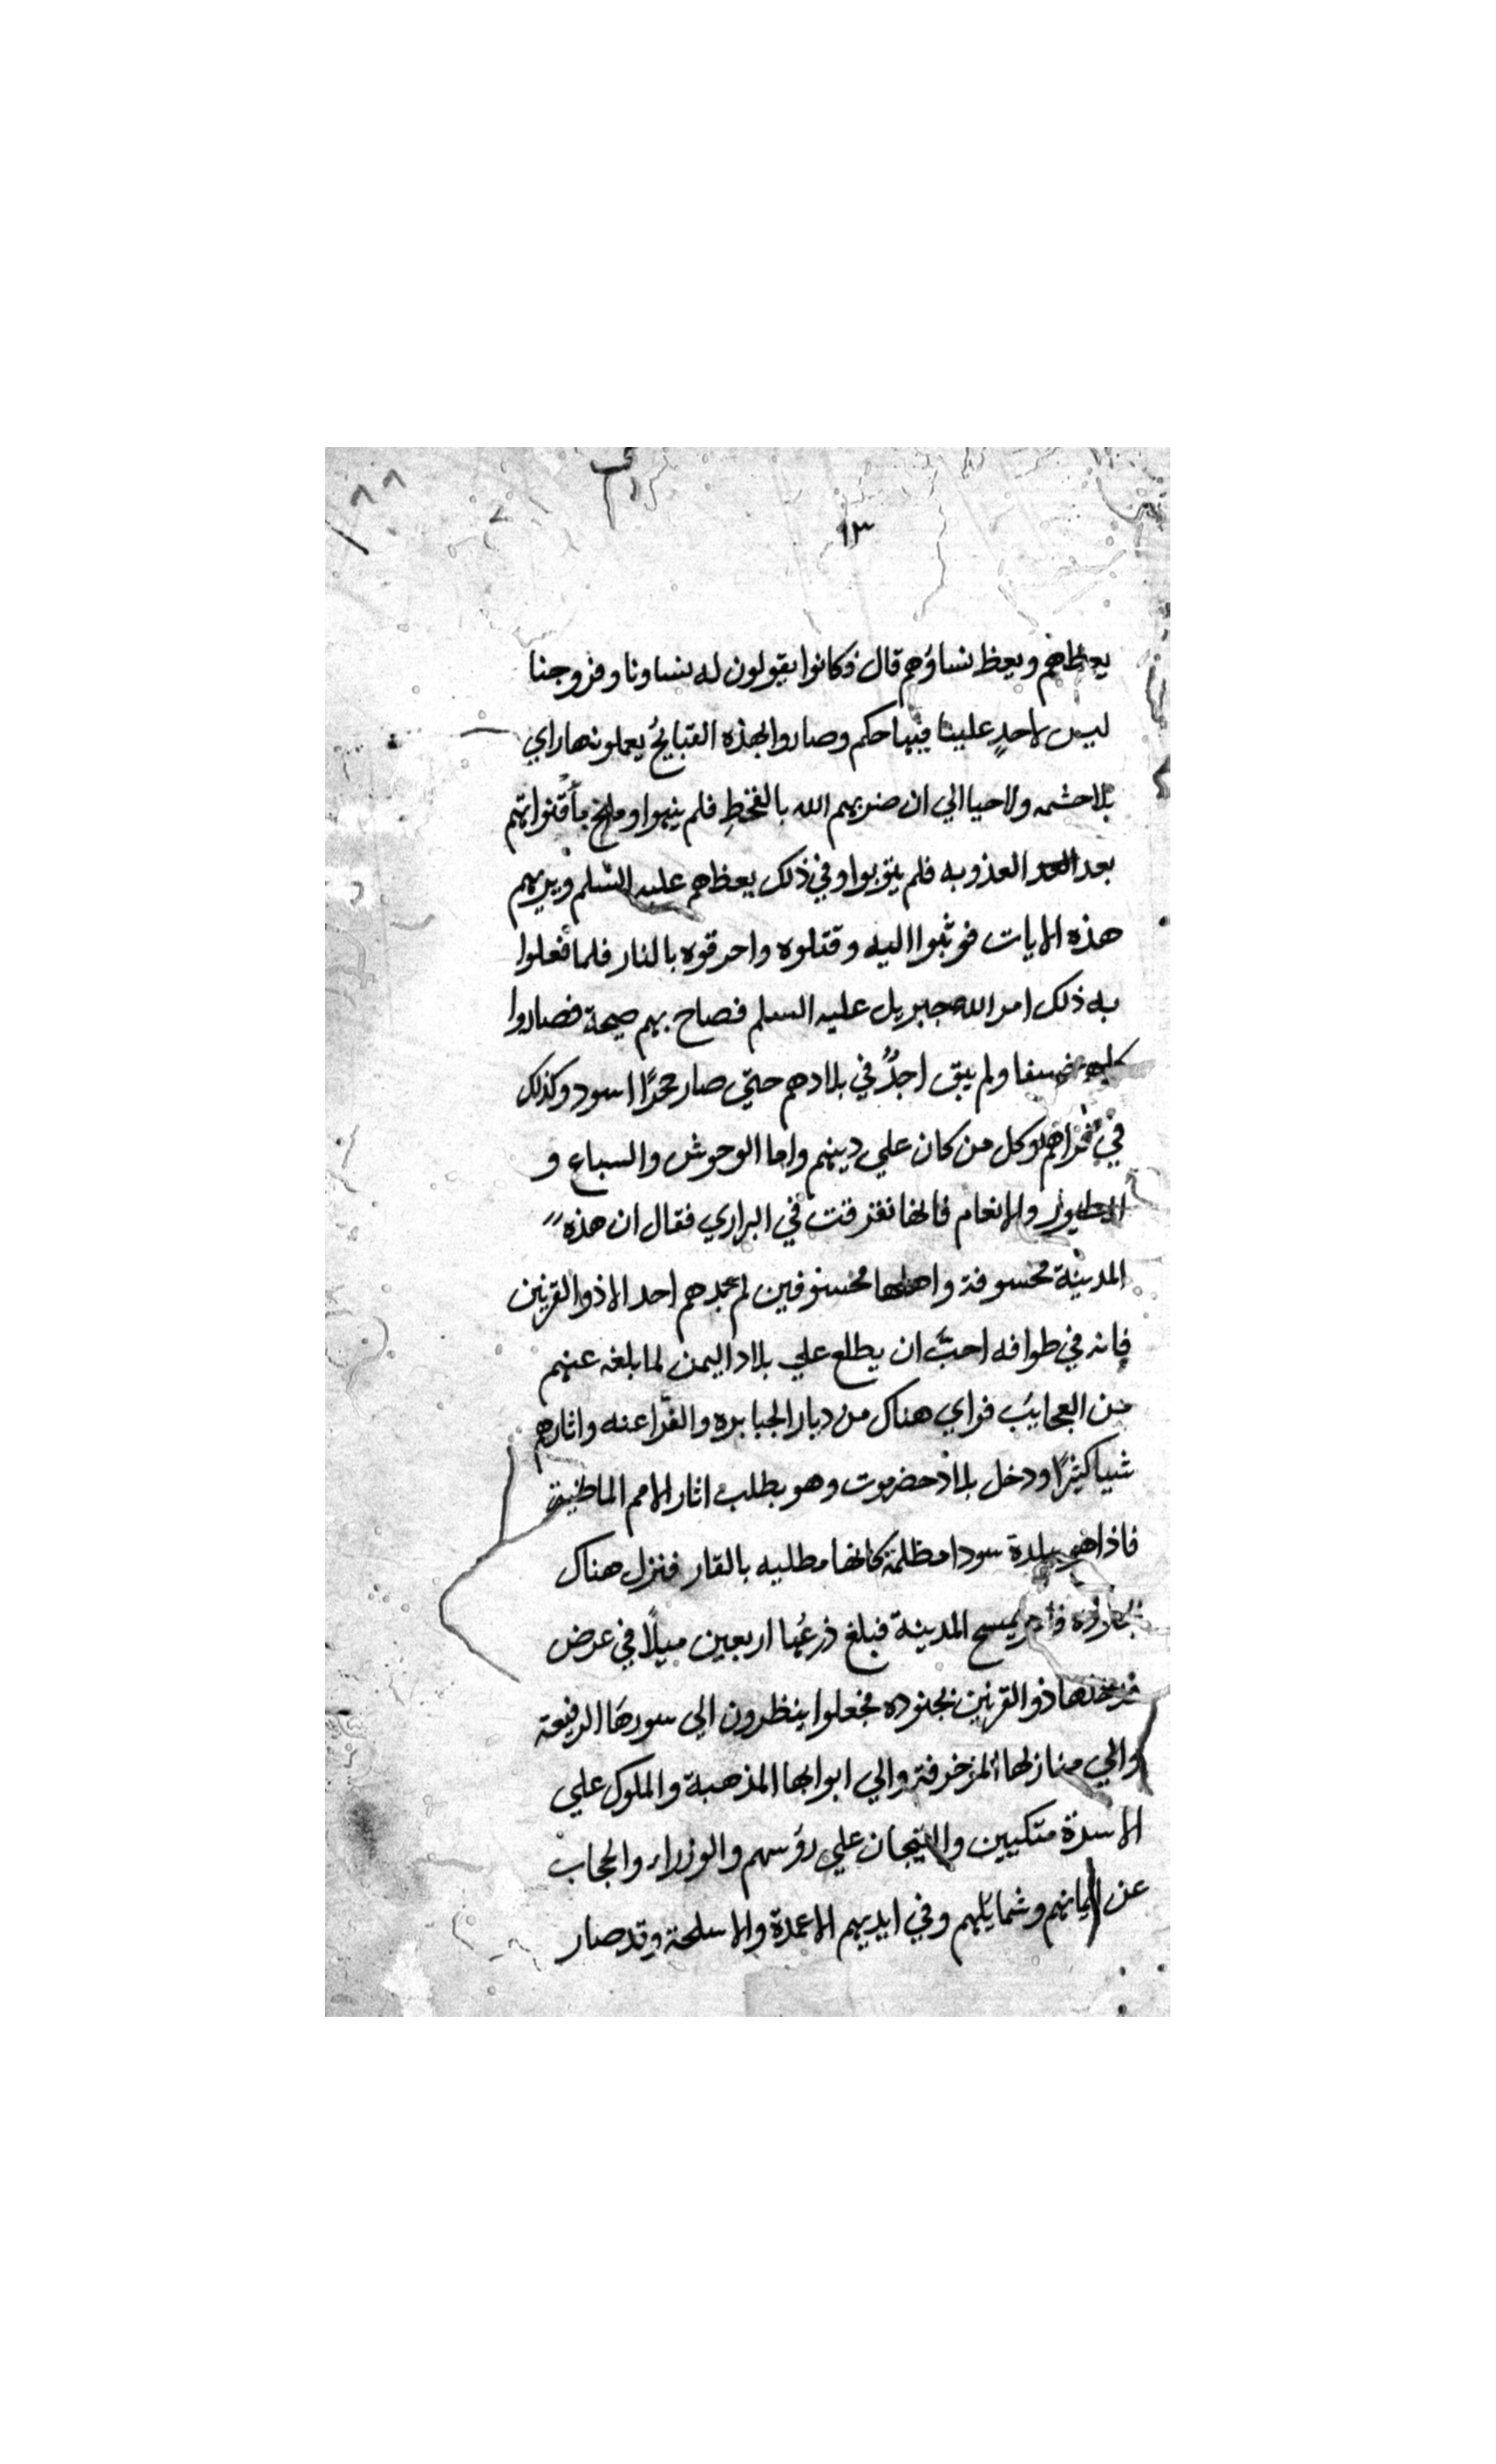 ١٣
يعظهم ويعظ نساؤهم قال فكانوا يقولون له نساونا وفزوجنا
ليس لاحدٍ علينا فيها حكم وصاروا بهذه القبايحُ يعملونها راي
بلا حشمه ولا حيا الي ان ضربهم الله بالقحطِ فلم ينهوا وملح
بعد العذوبه فلم يتوبوا وفي ذلك يعظهم عليه السّلم ويريهم
هذه الايات فوثبوا اليه وقتلوه واحرقوه بالنار فلما فعلوا
به ذلك امر الله جبريل عليه السلم فصاح بهم صيحة فصاروا
خسفا ولم يبق احدٌ في بلادهم حتي صار حجرًا اسود وكذلك
في وكل من كان علي دينهم واما الوحوش والسباع و
الطيور والانعام فانها تفرقت في البراري فقال ان هذه
المدينة مخسوفة واهلها مخسوفين لم يجدهم احد الا ذوالقرنين
فانه في طوافه احبّ ان يطلع علي بلاد اليمن لما بلغه عنهم
من العجايب فراي هناك من ديار الجبابره والفراعنه واثارهم
شيا كثيرًا ودخل بلاد حضرموت وهو يطلب اثار الامم الماضية
فاذا هو ببلدة سودا مظلمة كانها مطليه بالقار فنزل هناك
يمسح المدينة فبلغ ذرعُها اربعين ميلًا في عرض
ذوالقرنين بجنوده فجعلوا ينظرون الي سورها الرفيعة
والي منازلها المزخرفة والي ابوابها المذهبة والملوك علي
الاسرة متكيين والتيجان علي رؤسهم والوزراء والحجاب
عن ايمانهم وشمايلهم وفي ايديهم الاعمدة والاسلحة وقد صار